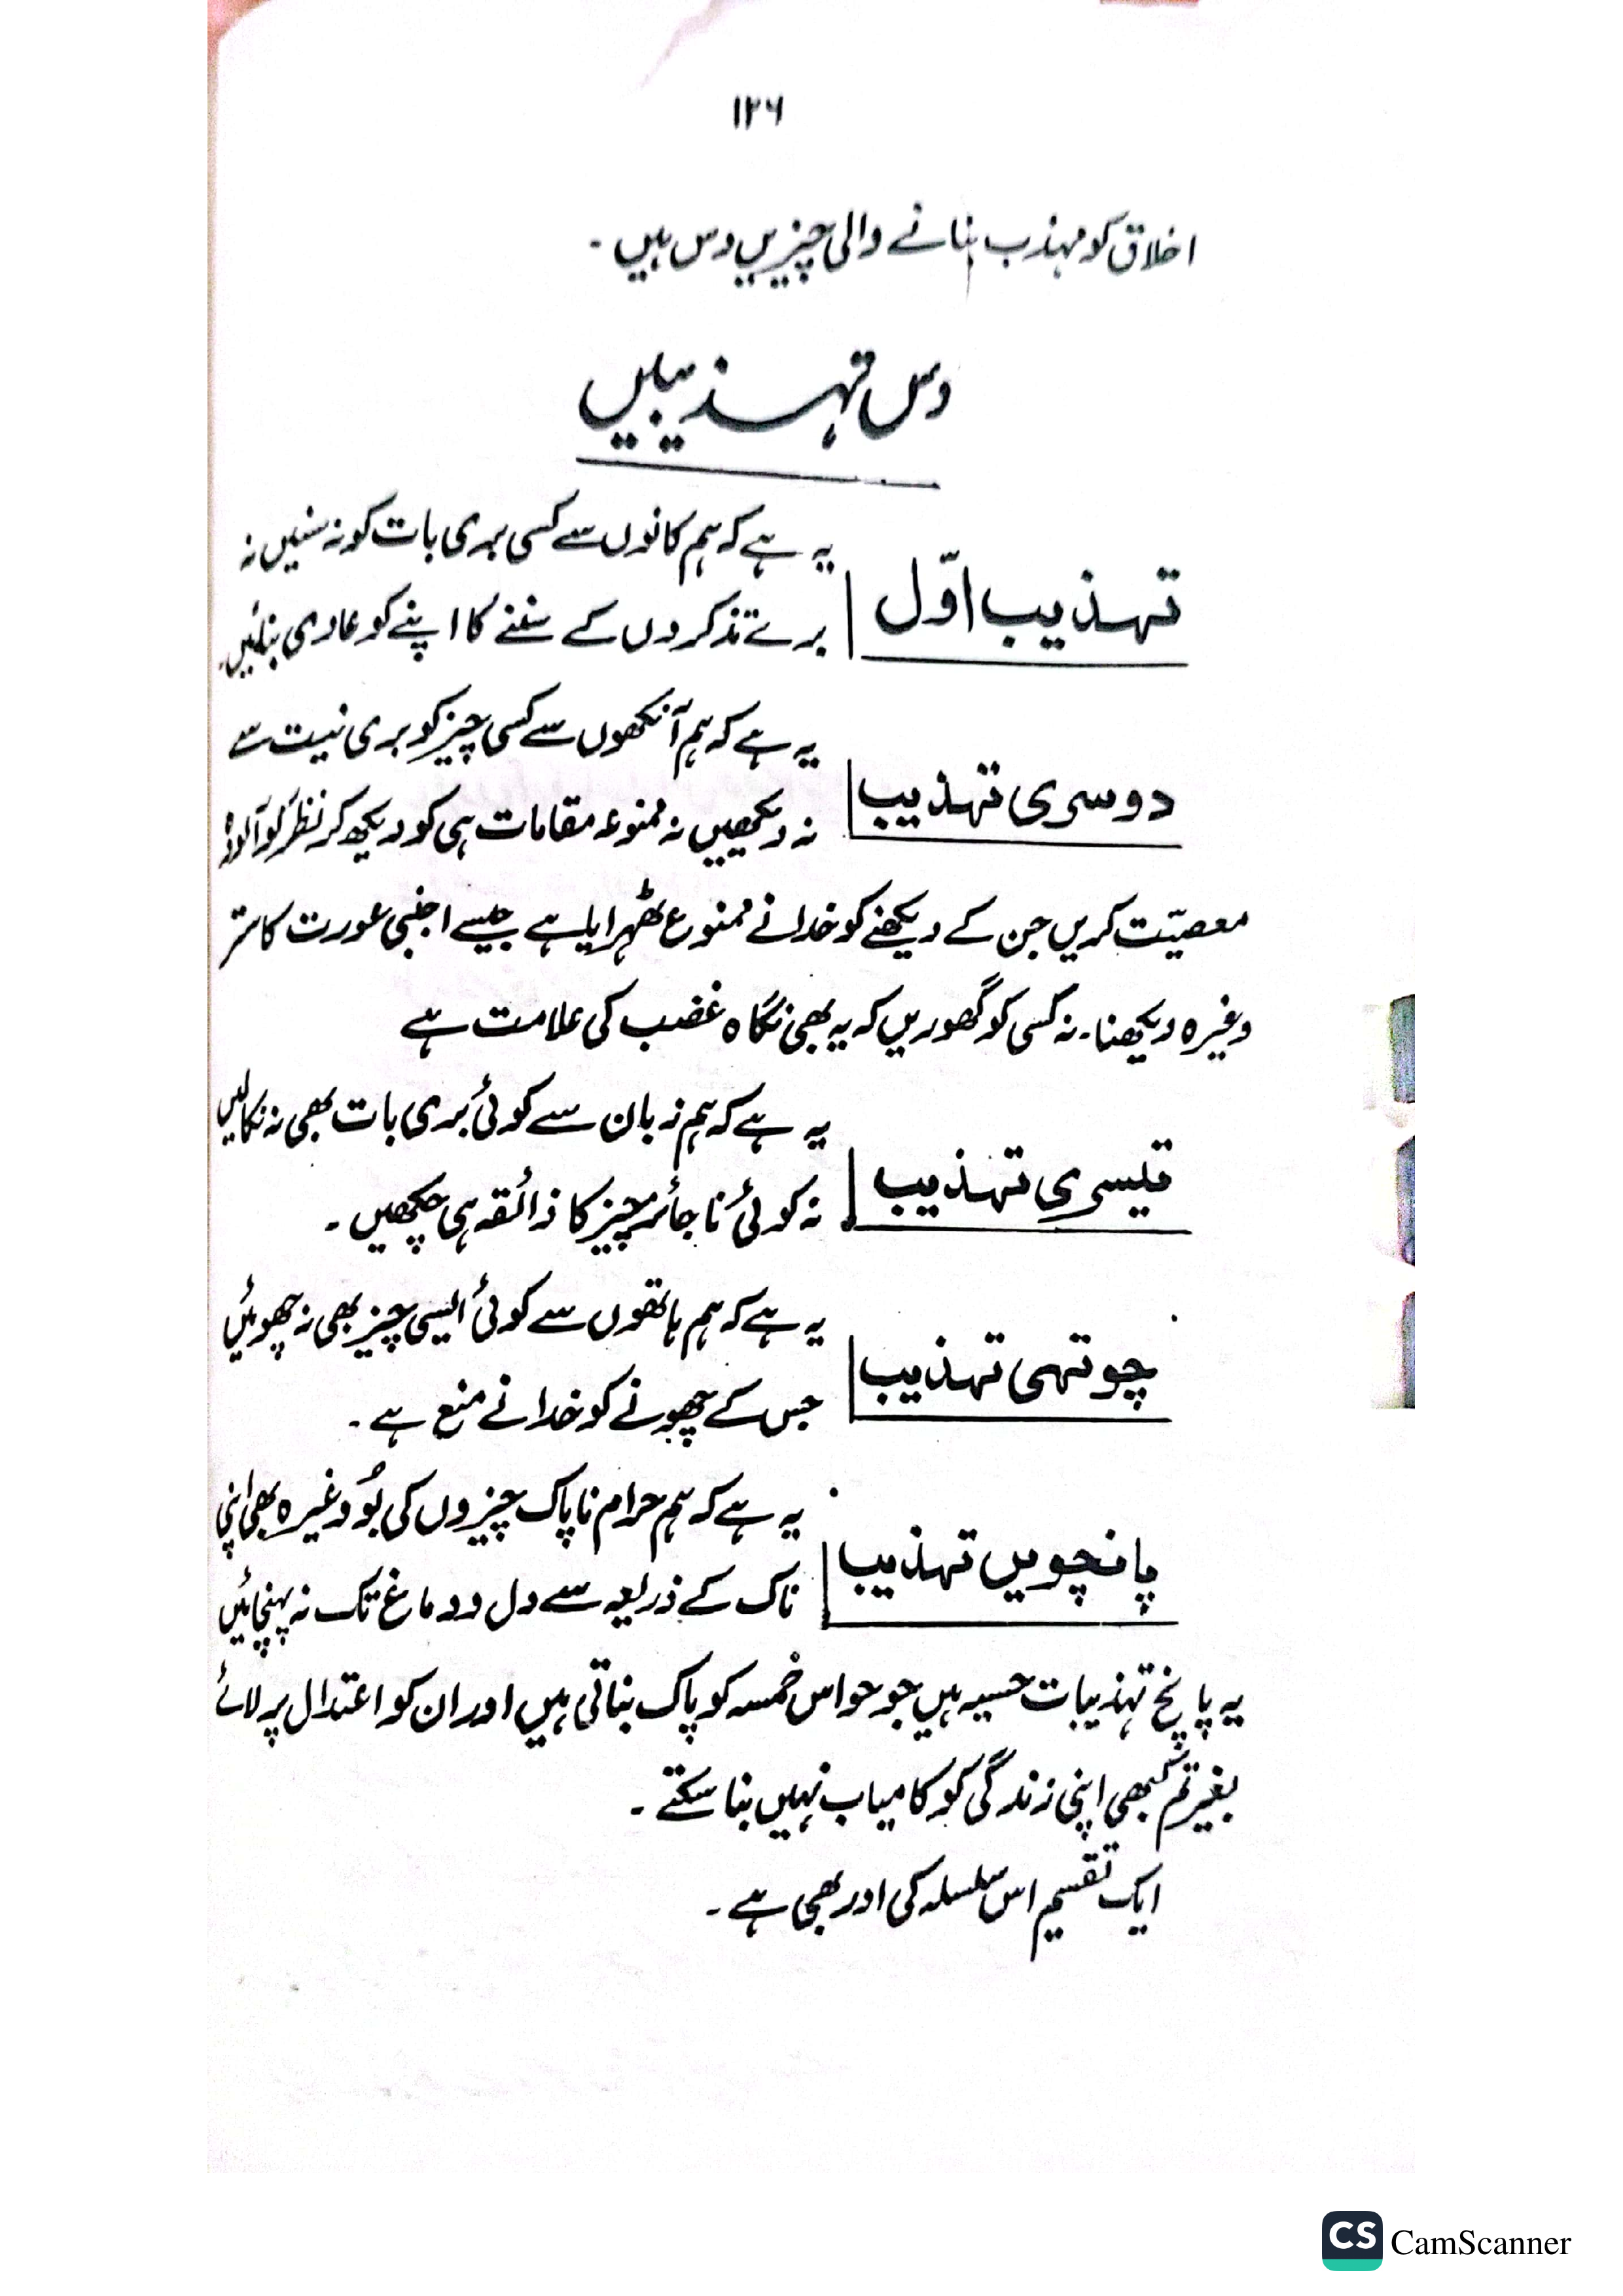 ۱۲۶
اخلاق کو مہذب بنانے والی چیزیں دس ہیں ۔
دس تہذیبیں
تہذیب اوّل
یہ ہے کہ ہم کانوں سے کسی بری بات کو نہ سنیں نہ
برے تذکروں کے سننے کا اپنے کو عادی بنائیں۔
دوسری تہذیب
یہ ہے کہ ہم آنکھوں سے کسی چیز کو بری نیت سے
نہ دیکھیں نہ ممنوعہ مقامات ہی کو دیکھ کر نظر کو آلودہ
معصیّت کریں جن کے دیکھنے کو خدا نے ممنوع ٹھہرایا ہے جیسے اجنبی عورت کا ستر
وغیرہ دیکھنا۔ نہ کسی کو گھوریں کہ یہ بھی نگاہ غضب کی علامت ہے
تیسری تہذیب
یہ ہے کہ ہم زبان سے کوئی بری بات بھی نہ نکالیں
نہ کوئی ناجائز چیز کا ذائقہ ہی چکھیں ۔
چوتھی تہذیب
یہ ہے کہ ہم ہاتھوں سے کوئی ایسی چیز بھی نہ چھوئیں
جس کے چھونے کو خدا نے منع ہے ۔
پانچویں تہذیب
یہ ہے کہ ہم حرام ناپاک چیزوں کی بُو وغیرہ بھی اپنی
ناک کے ذریعہ سے دل و دماغ تک نہ پہنچائیں
یہ پانچ تہذیبات حسیہ ہیں جو حواس خمسہ کو پاک بناتی ہیں اور ان کو اعتدال پر لائے
بغیر تم کبھی اپنی زندگی کو کامیاب نہیں بنا سکتے ۔
ایک تقسیم اس سلسلہ کی اور بھی ہے ۔
CS CamScanner